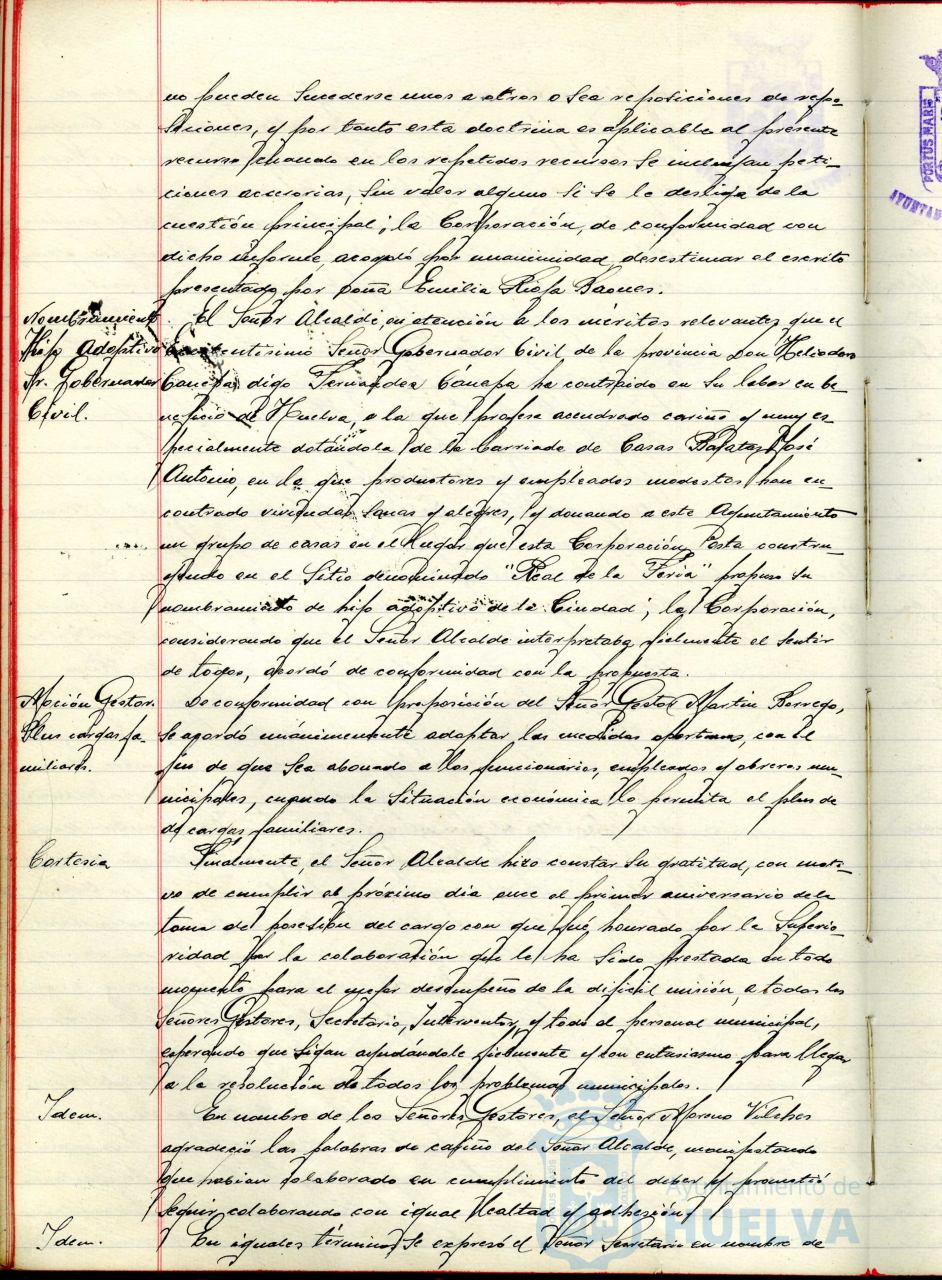 no pueden sucederse unos a otros o sea reposiciones de repo-
siciones, y por tanto esta doctrina es aplicable al presente
recurso, cuando en los repetidos recursos se incluyan peti-
ciones accesorias, sin valor alguno si se le desliga de la
cuestión principal; la Corporación, de conformidad con
dicho informe, acordó por unanimidad, desestimar el escrito
presentado por Doña Emilia Rioja
Nombramiento
Hijo Adoptivo
Sr. Gobernador
Civil.
El Señor Alcalde, en atención a los méritos relevantes que el
Excelentísimo Señor Gobernador Civil, de la provincia Don Heliodoro
Canepa, digo Fernández Cánepa ha contraido en su labor en be-
neficio de Huelva, a la que profesa acendrado cariño y muy es-
pecialmente dotándola de la barriada de Casas Baratas José
Antonio, en la que productores y empleados modestos han en-
contrado viviendas sanas y alegres, y donando a este Ayuntamiento
un grupo de casas en el lugar que esta Corporación, esta constru-
yendo en el Sitio denominado "Real de la Feria" propuso su
nombramiento de hijo adoptivo de la Ciudad; la Corporación,
considerando que el Señor Alcalde interpretaba fielmente el sentir
de todos, acordó de conformidad con la propuesta.
Moción Gestor.
Plus cargas fa-
miliares.
De conformidad con proposición del Señor Gestor Martin Borrego,
se acordó unánimemente adoptar las medidas oportunas, con el
fin de que sea abonado a los funcionarios, empleados y obreros mu-
nicipales, cuando la situación económica lo permita el plus de
de cargas familiares.
Cortesia
Finalmente, el Señor Alcalde hizo constar su gratitud, con moti-
vo de cumplir el próximo dia once el primer aniversario de la
toma de posesión del cargo con que fué honrado por la Superio-
ridad por la colaboración que le ha sido prestada en todo
momento para el mejor desempeño de la dificil misión, a todos los
Señores Gestores, Secretario, Interventor, y todo el personal municipal,
esperando que sigan ayudándole fielmente y con entusiasmo para llegar
a la resolución de todos los problemas municipales.
Idem.
En nombre de los Señores Gestores, el Señor Moreno Vilches
agradeció las palabras de cariño del Señor Alcalde, manifestando
que habian colaborado en cumplimiento del deber y prometió
seguir, colaborando con igual lealtad y adhesión.
Idem.
En iguales términos, se expresó el Señor Secretario en nombre de
PORTUS MARIS
Ayuntamiento de
HUELVA